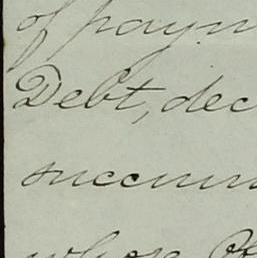 of paym
Debt, dec
succum
whose Ob